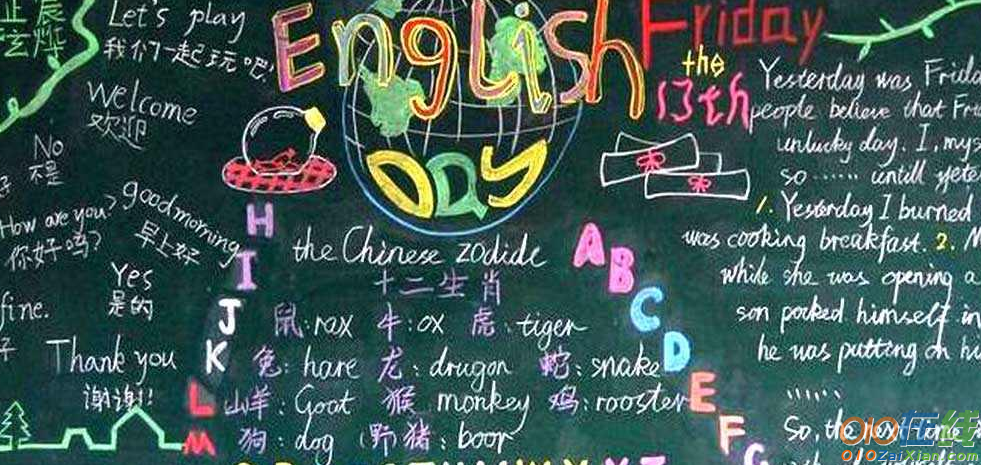 Let's play
我们一起玩吧!
Welcome
欢迎
No
不是
How are you?
你好吗?
good morning
早上好
Yes
是的
fine.
Thank you
谢谢!!
English
Day
the Chinese zodide
十二生肖
鼠: rax 牛: ox 虎: tiger
兔: hare 龙: drugon 蛇: snake
山羊: Goat 猴 monkey 鸡: rooster
狗: dog (野猪: boor
H
I
J
K
L
M
A
B
C
D
E
F
G
Friday
the
13th
Yesterday was
people believe that
unlucky day. I,
so ...... untill
1. Yesterday I burned
was cooking breakfast. 2.
while she was opening a
son pocked himself
he was putting on
......
So, the next time
010在线
010ZaiXian.com